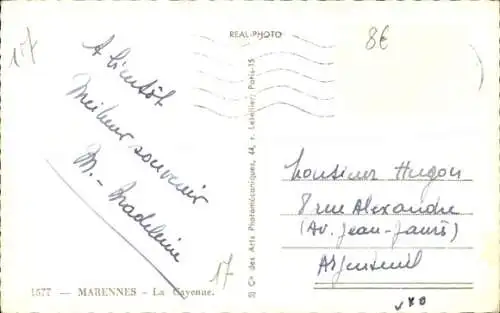 17
REAL-PHOTO
8€
A bientôt
Meilleur souvenir
M. Madeleine
S) Cie des Arts Photomécaniques, 44, r. Letellier, Paris-15
Monsieur Hugon
8 rue Alexandre
(Av. Jean-Jaurès)
Argenteuil
17
1577 — MARENNES - La Cayenne.